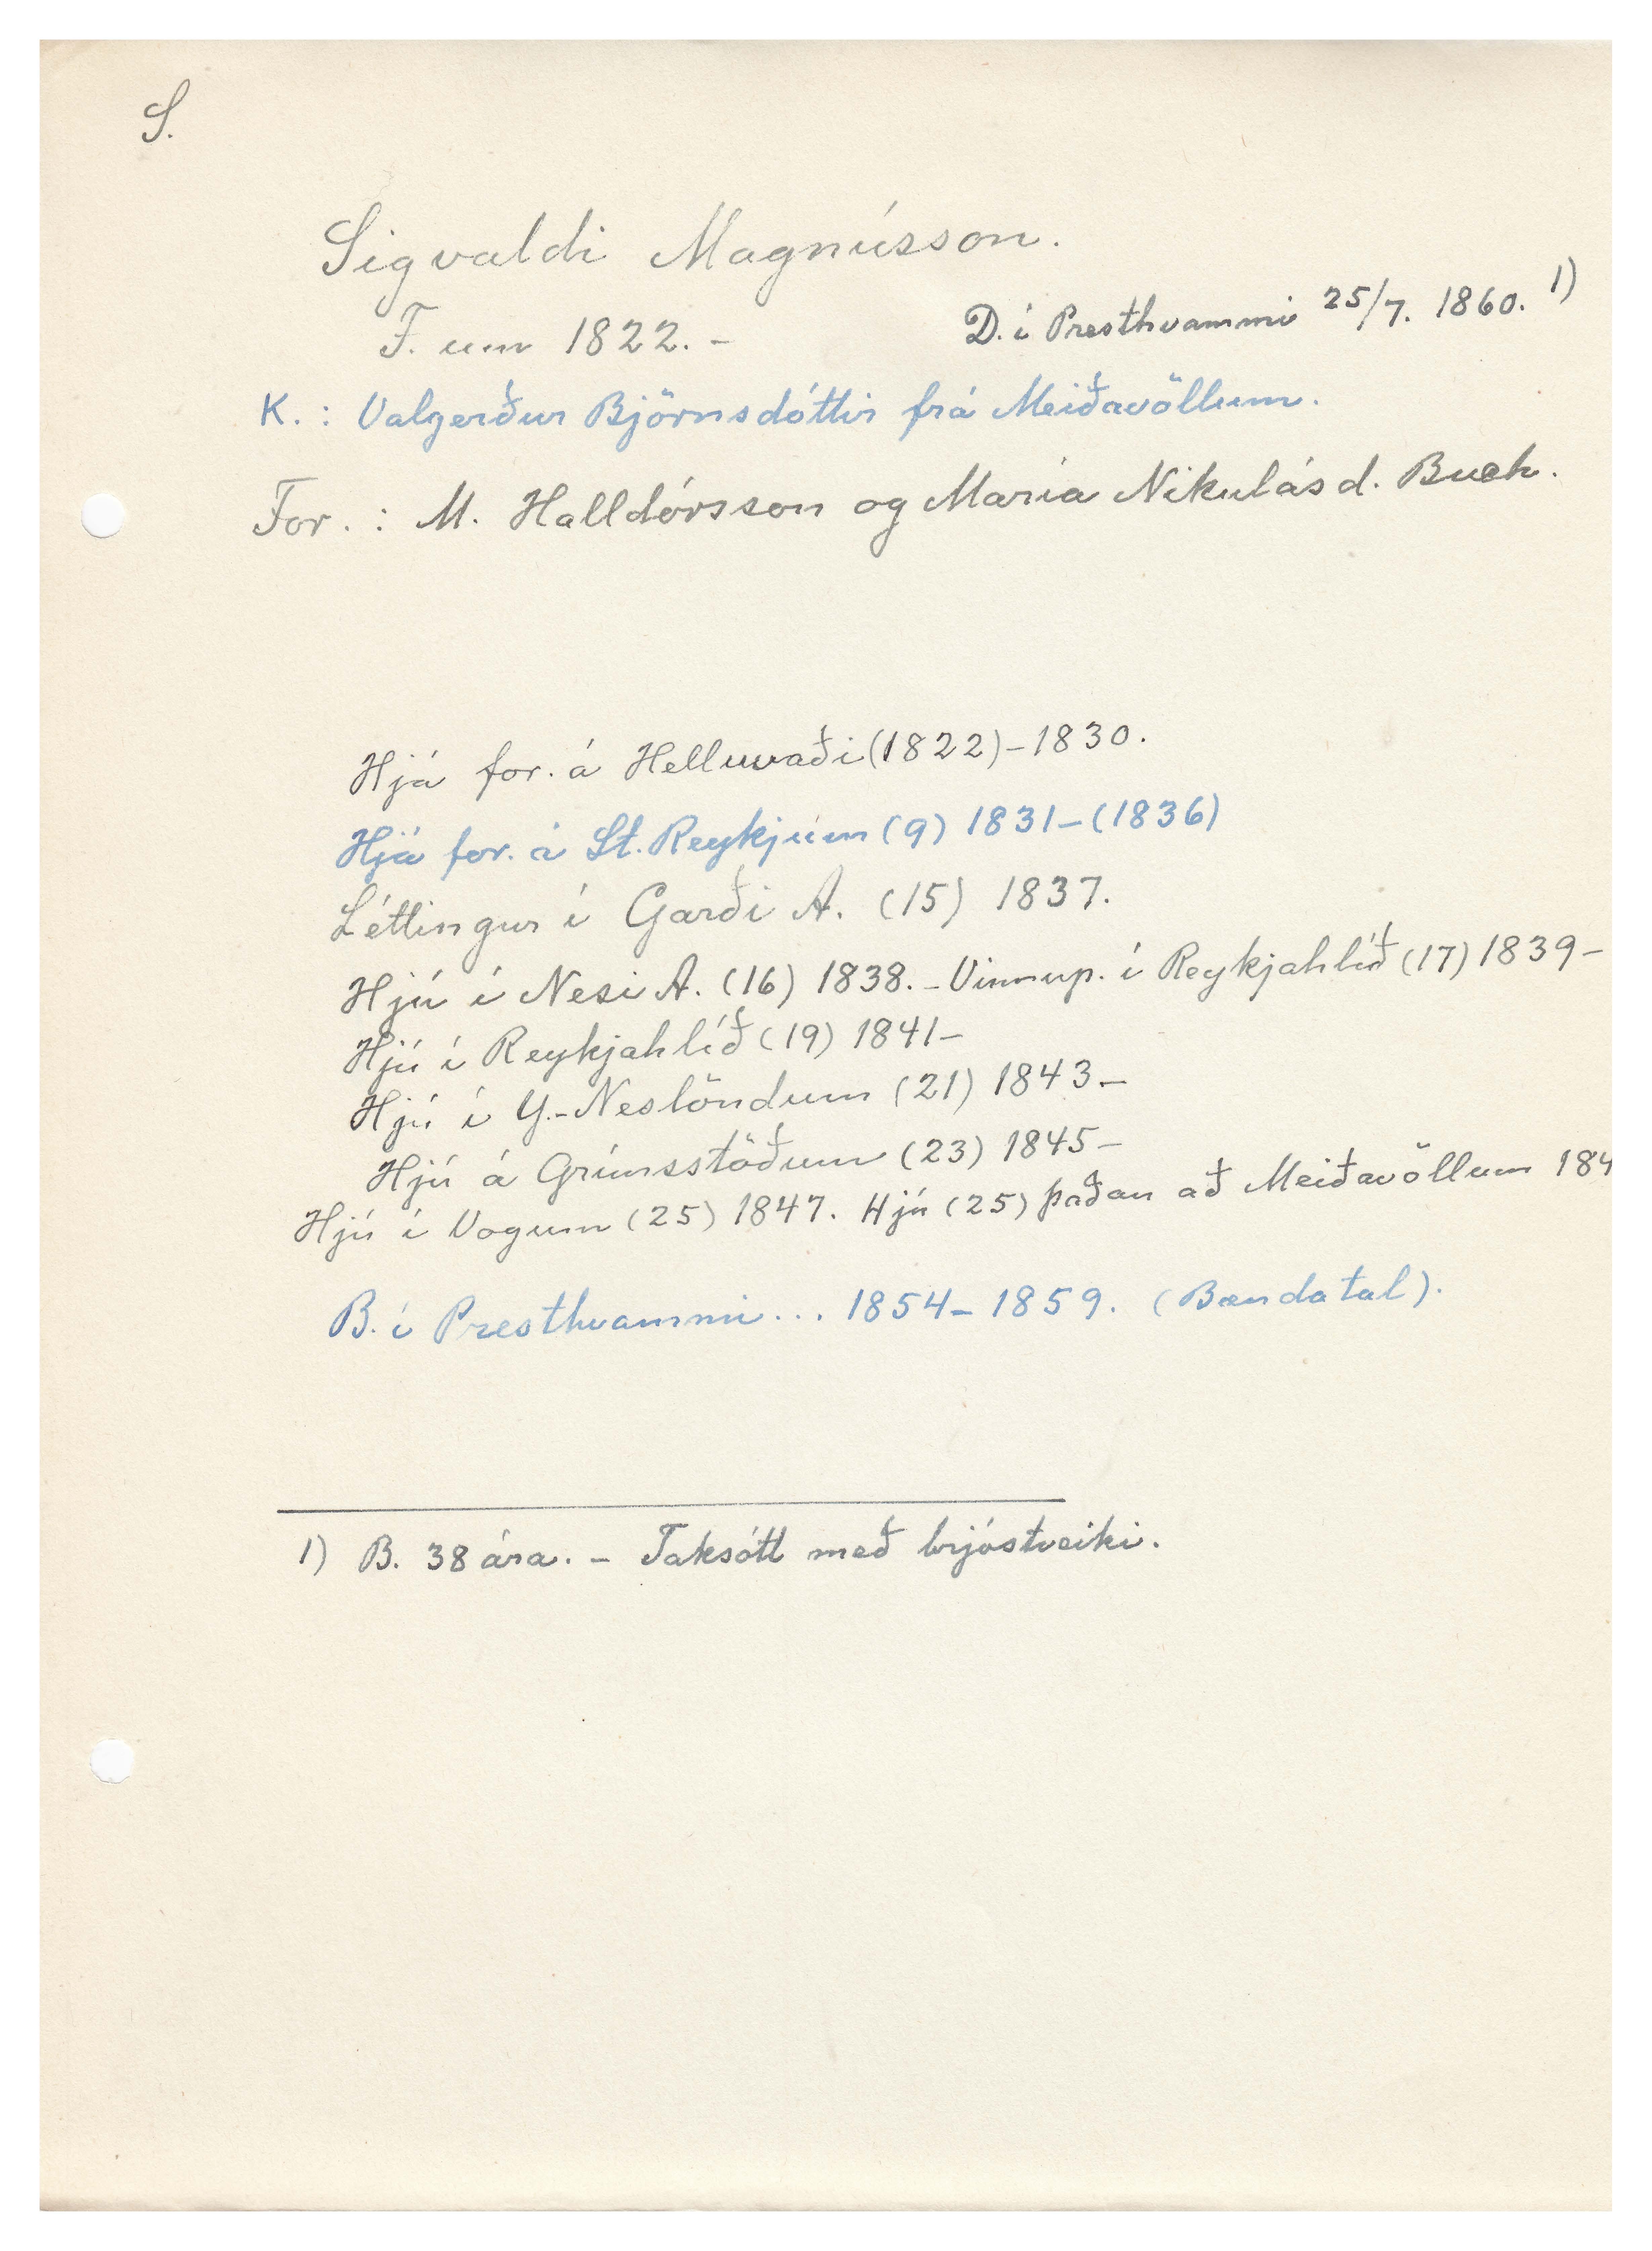 S.
Sigvaldi Magnússon.
F. um 1822. - D. í Presthvammi 25/7. 1860. 1)
K. : Valgerður Björnsdóttir frá Meiðavöllum.
For. : M. Halldórsson og María Nikulásd. Buch.
Hjá for. á Helluvaði (1822) - 1830.
Hjá for. á St. Reykjum (9) 1831 - (1836)
Léttingur í Garði A. (15) 1837.
Hjú í Nesi A. (16) 1838. - Vinnup. í Reykjahlíð (17) 1839 -
Hjú í Reykjahlíð (19) 1841 -
Hjú í Y.-Neslöndum (21) 1843 -
Hjú á Grímsstöðum (23) 1845 -
Hjú í Vogum (25) 1847. Hjú (25) þaðan að Meiðavöllum 184
B. í Presthvammi ... 1854 - 1859. (Bændatal).
1) B. 38 ára. - Taksótt með brjóstveiki.